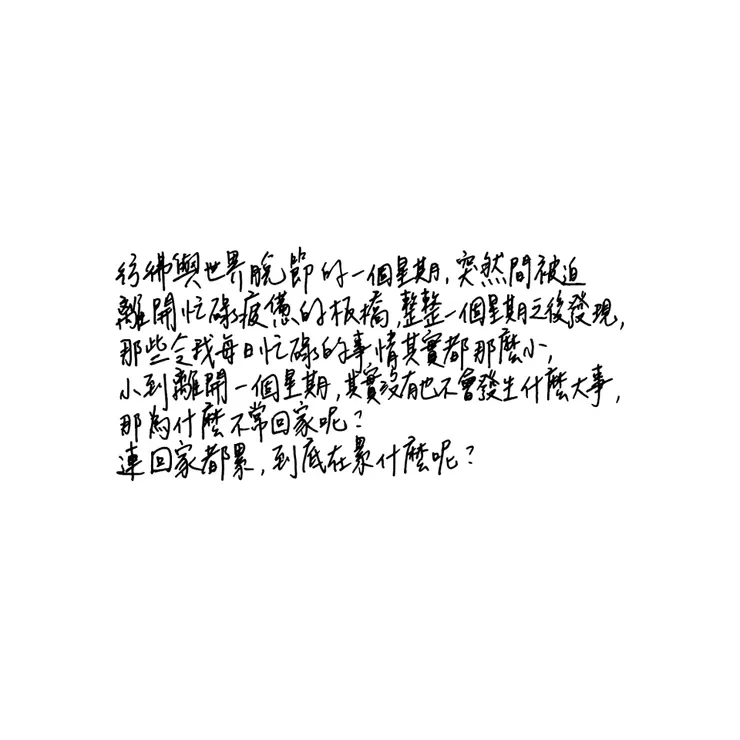 彷彿與世界脫節的一個星期,突然間被迫
離開忙碌疲憊的板橋,整整一個星期之後發現,
那些令我每日忙碌的事情其實都那麼小,
小到離開一個星期,其實沒有也不會發生什麼大事,
那為什麼不常回家呢?
連回家都累,到底在累什麼呢?